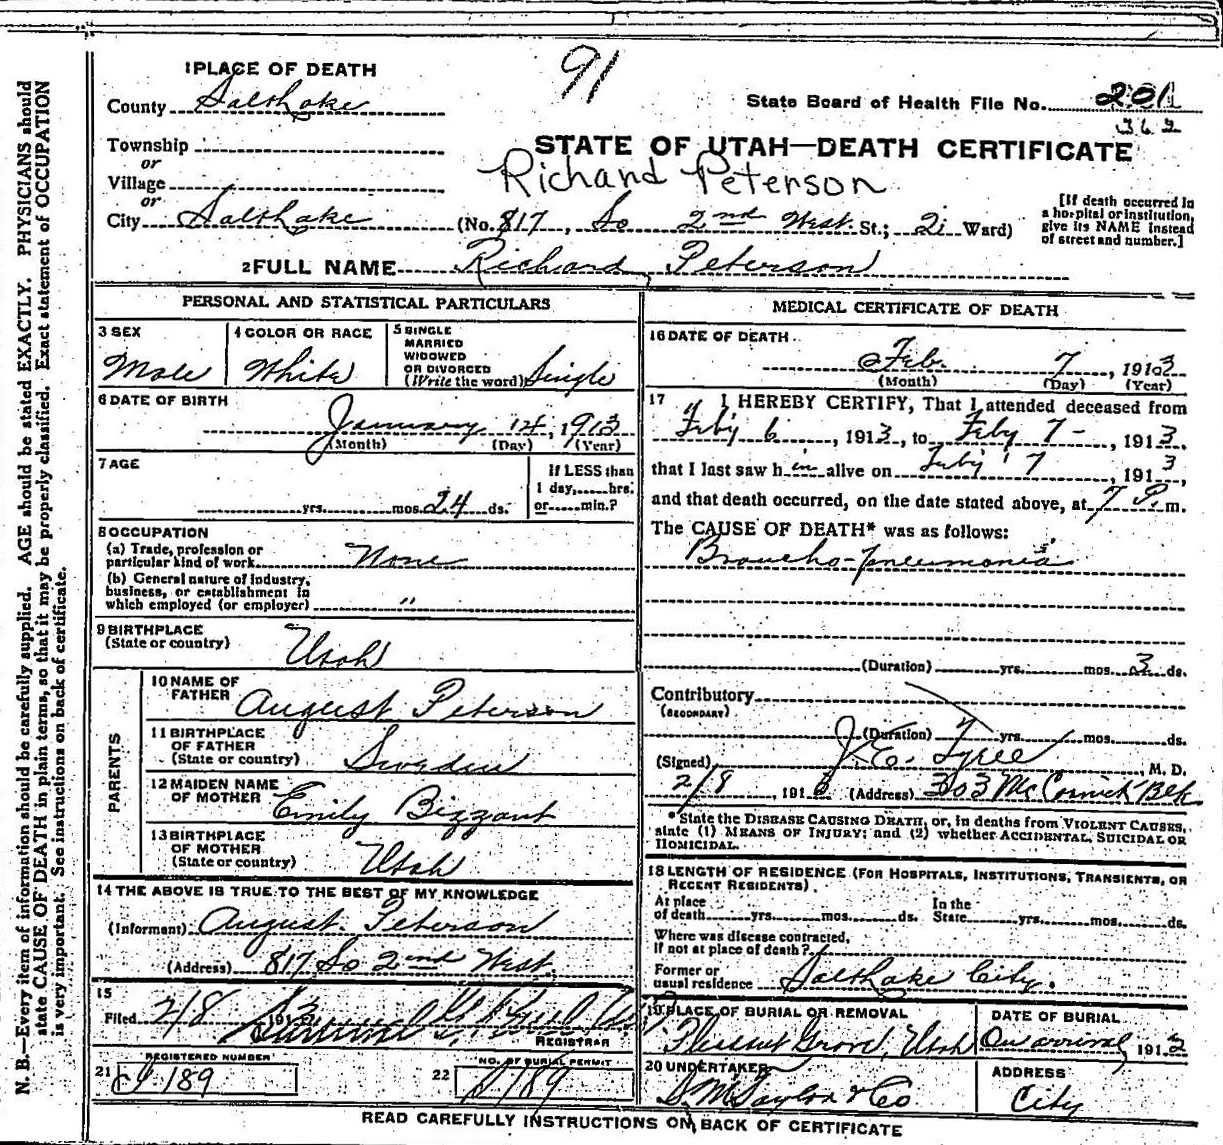 91
1 PLACE OF DEATH
County Salt Lake
State Board of Health File No. 201
362
Township
STATE OF UTAH—DEATH CERTIFICATE
or
Village
Richard Peterson
or
City Salt Lake (No. 817, So 2nd West St.; 2 Ward)
[If death occurred in a hospital or institution, give its NAME instead of street and number.]
2 FULL NAME Richard Peterson
PERSONAL AND STATISTICAL PARTICULARS
3 SEX
Male
4 COLOR OR RACE
White
5 SINGLE
MARRIED
WIDOWED
OR DIVORCED
(Write the word) Single
6 DATE OF BIRTH
January 14, 1913
(Month) (Day) (Year)
7 AGE
yrs. mos. 24 ds.
If LESS than
1 day, hrs.
or min.?
8 OCCUPATION
(a) Trade, profession or
particular kind of work None
(b) General nature of industry,
business, or establishment in
which employed (or employer) "
9 BIRTHPLACE
(State or country) Utah
PARENTS
10 NAME OF
FATHER August Peterson
11 BIRTHPLACE
OF FATHER
(State or country) Sweden
12 MAIDEN NAME
OF MOTHER Emily Bizzant
13 BIRTHPLACE
OF MOTHER
(State or country) Utah
14 THE ABOVE IS TRUE TO THE BEST OF MY KNOWLEDGE
(Informant) August Peterson
(Address) 817 So 2nd West
15
Filed 2/8 1913
REGISTRAR
REGISTERED NUMBER
21 189
NO. OF BURIAL PERMIT
22 189
MEDICAL CERTIFICATE OF DEATH
16 DATE OF DEATH
Feb. 7, 1913
(Month) (Day) (Year)
17 I HEREBY CERTIFY, That I attended deceased from
Feby 6, 1913, to Feby 7, 1913,
that I last saw him alive on Feby 7, 1913,
and that death occurred, on the date stated above, at 7 P. m.
The CAUSE OF DEATH* was as follows:
Broncho-pneumonia
(Duration) yrs. mos. 3 ds.
Contributory
(SECONDARY)
(Duration) yrs. mos. ds.
(Signed) J. E. Tyree, M. D.
2/8, 1913 (Address) 303 McCornick Blk
*State the DISEASE CAUSING DEATH, or, in deaths from VIOLENT CAUSES,
state (1) MEANS OF INJURY; and (2) whether ACCIDENTAL, SUICIDAL OR
HOMICIDAL.
18 LENGTH OF RESIDENCE (FOR HOSPITALS, INSTITUTIONS, TRANSIENTS, OR
RECENT RESIDENTS).
At place
of death yrs. mos. ds.
In the
State yrs. mos. ds.
Where was disease contracted,
If not at place of death?
Former or
usual residence Salt Lake City.
19 PLACE OF BURIAL OR REMOVAL
Pleasant Grove, Utah
DATE OF BURIAL
On arrival, 1913
20 UNDERTAKER
S. M. Taylor & Co
ADDRESS
City
READ CAREFULLY INSTRUCTIONS ON BACK OF CERTIFICATE
N. B.—Every item of information should be carefully supplied. AGE should be stated EXACTLY. PHYSICIANS should
state CAUSE OF DEATH in plain terms, so that it may be properly classified. Exact statement of OCCUPATION
is very important. See instructions on back of certificate.